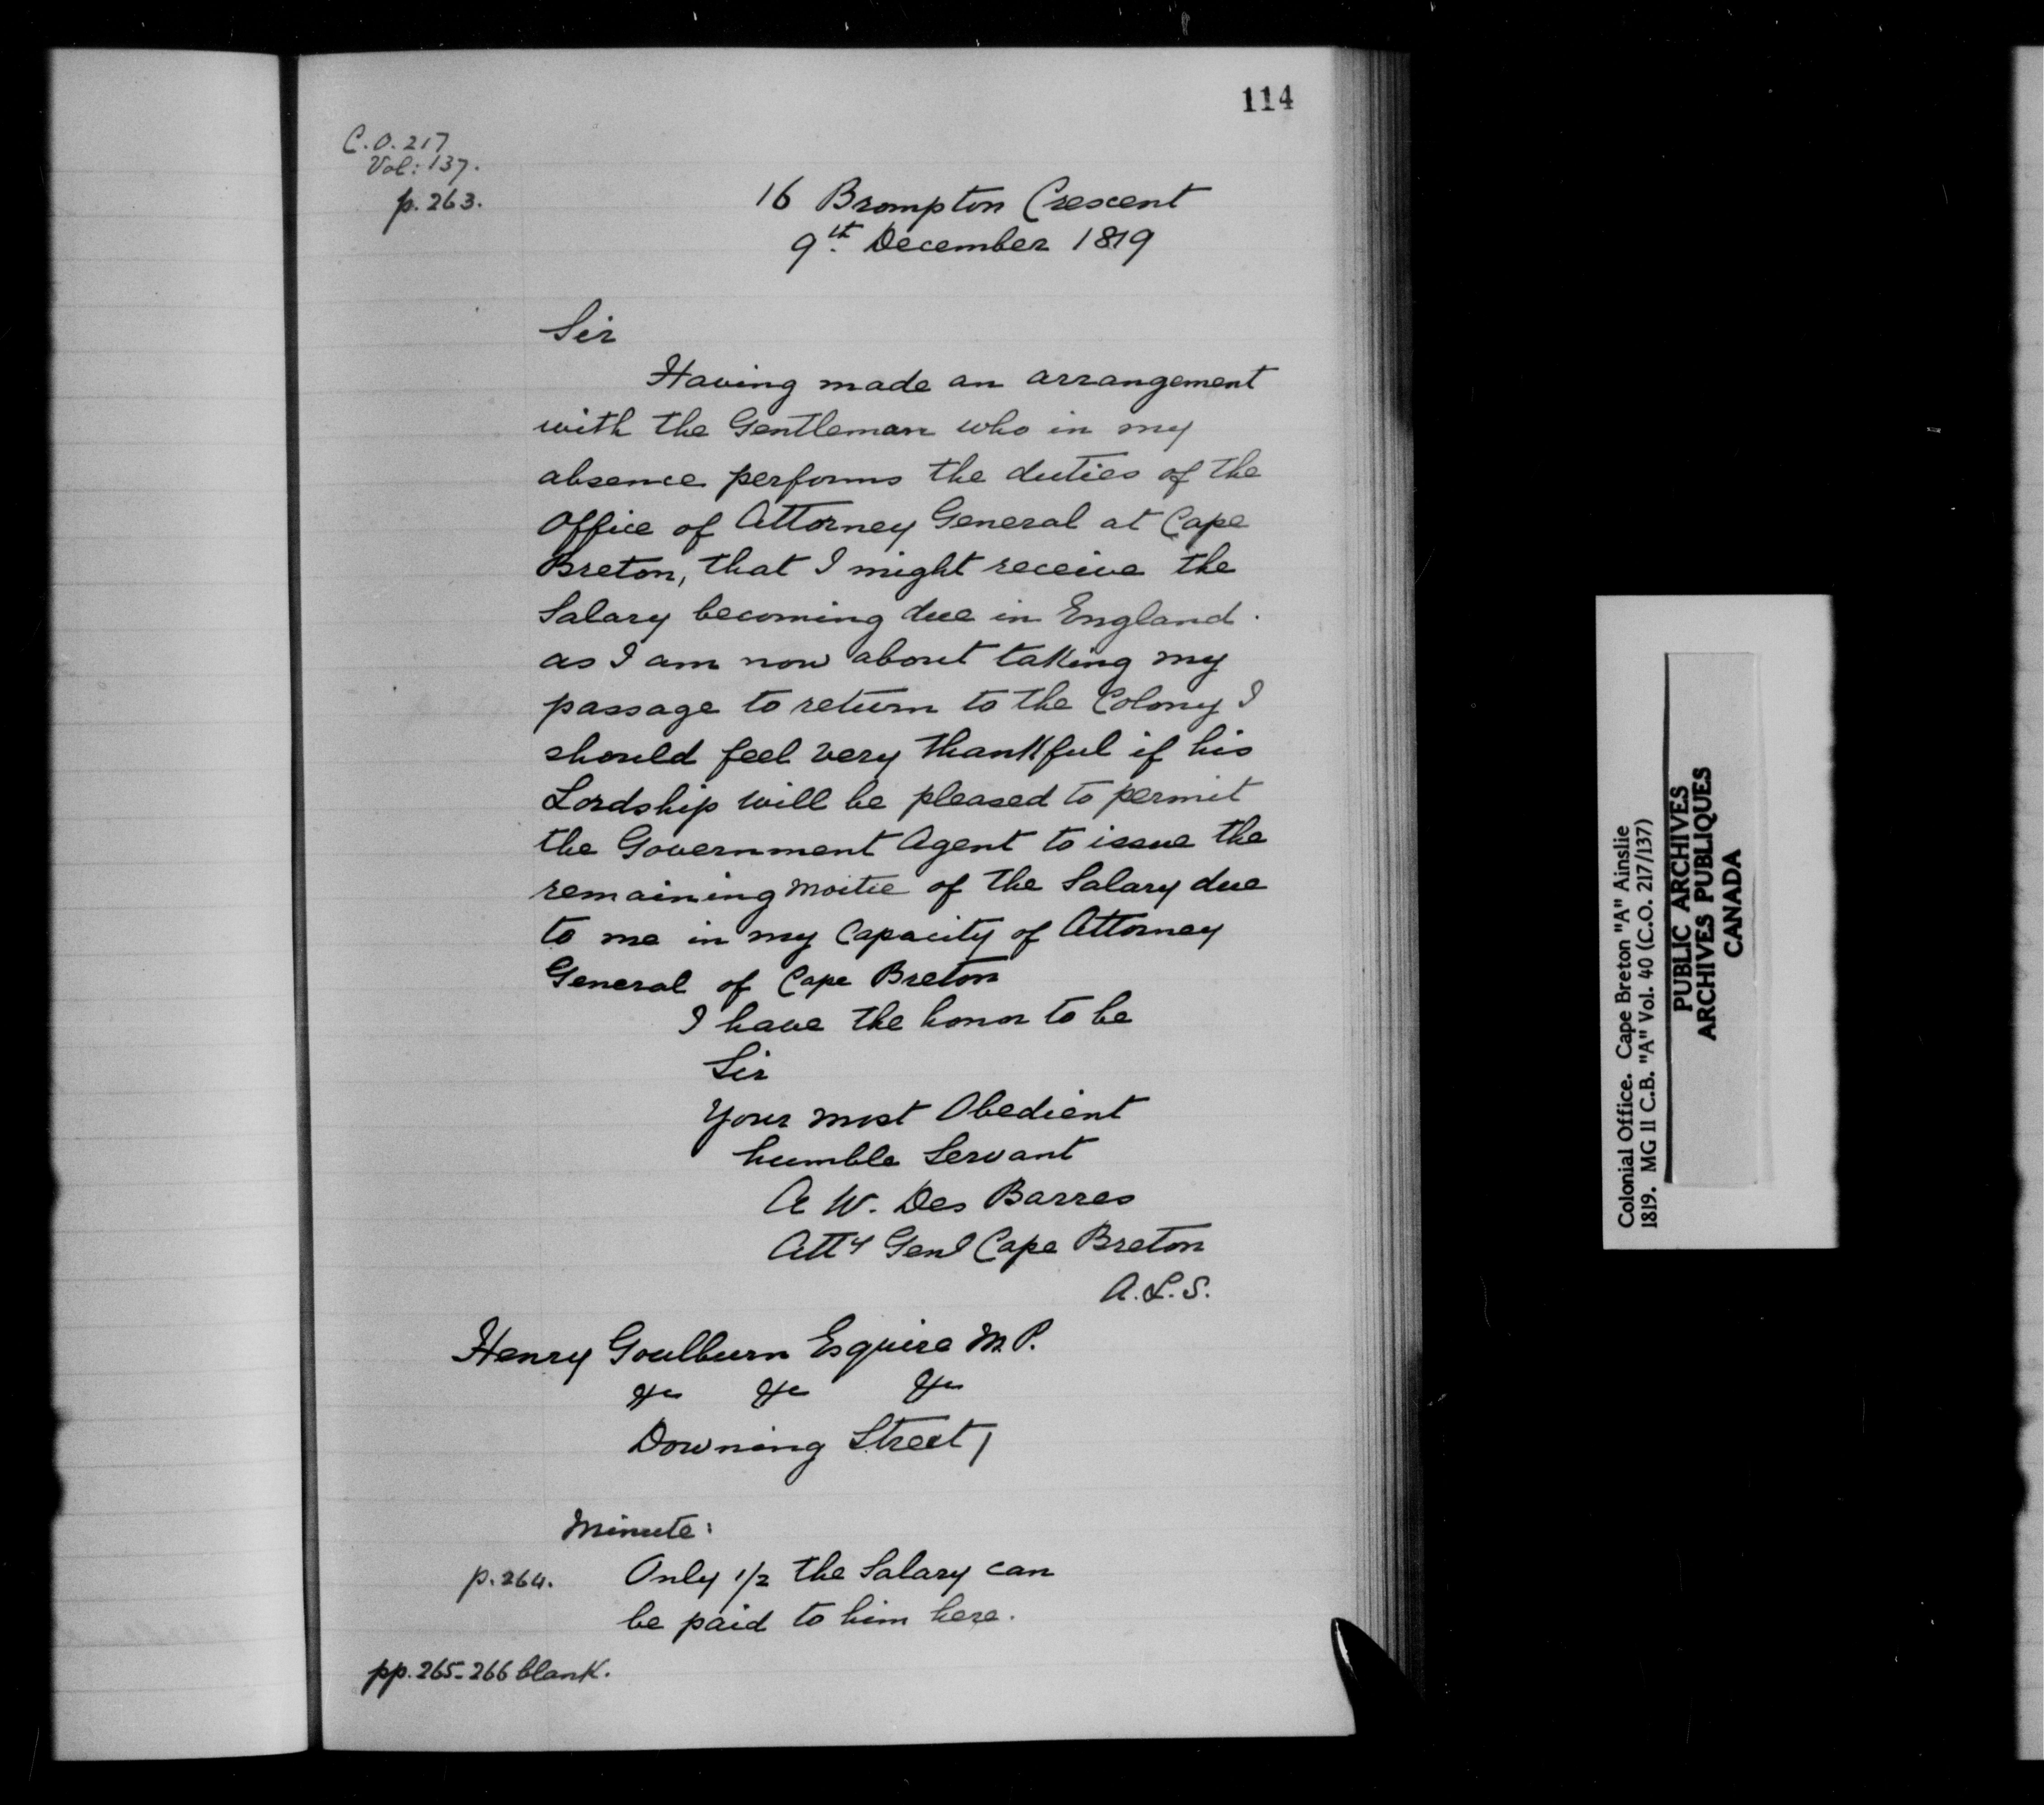 114
C.O. 217
Vol: 137.
p. 263.
16 Brompton Crescent
9th December 1819
Sir
Having made an arrangement
with the Gentleman who in my
absence performs the duties of the
Office of Attorney General at Cape
Breton, that I might receive the
Salary becoming due in England.
as I am now about taking my
passage to return to the Colony I
should feel very thankful if his
Lordship will be pleased to permit
the Government Agent to issue the
remaining moitie of the Salary due
to me in my Capacity of Attorney
General of Cape Breton
I have the honor to be
Sir
Your most Obedient
humble Servant
A W. Des Barres
Atty Genl Cape Breton
A.L.S.
Henry Goulburn Esquire M.P.
&c &c &c
Downing Street,
Minute:
p. 264. Only 1/2 the Salary can
be paid to him here.
pp. 265-266 blank.
Colonial Office. Cape Breton "A" Ainslie
1819. MG 11 C.B. "A" Vol. 40 (C.O. 217/137)
PUBLIC ARCHIVES
ARCHIVES PUBLIQUES
CANADA